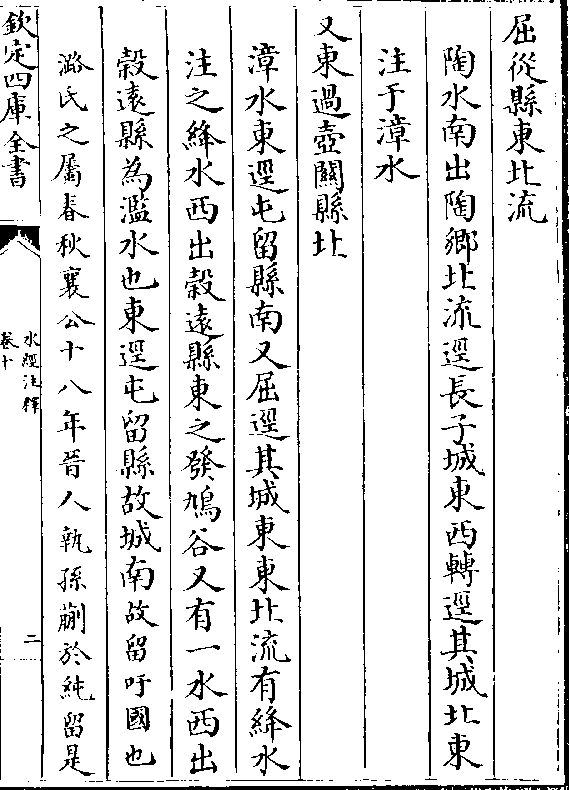 屈從縣東北流
陶水南出陶鄉北流逕長子城東西轉逕其城北東
注于漳水
又東過壺關縣北
漳水東逕屯留縣南又屈逕其城東東北流有絳水
注之絳水西出穀遠縣東之發鳩谷又有一水西出
穀遠縣為濫水也東逕屯留縣故城南故留吁國也
潞氏之屬春秋襄公十八年晉人執孫蒯於純留是
欽定四庫全書
水經注釋
卷十
二